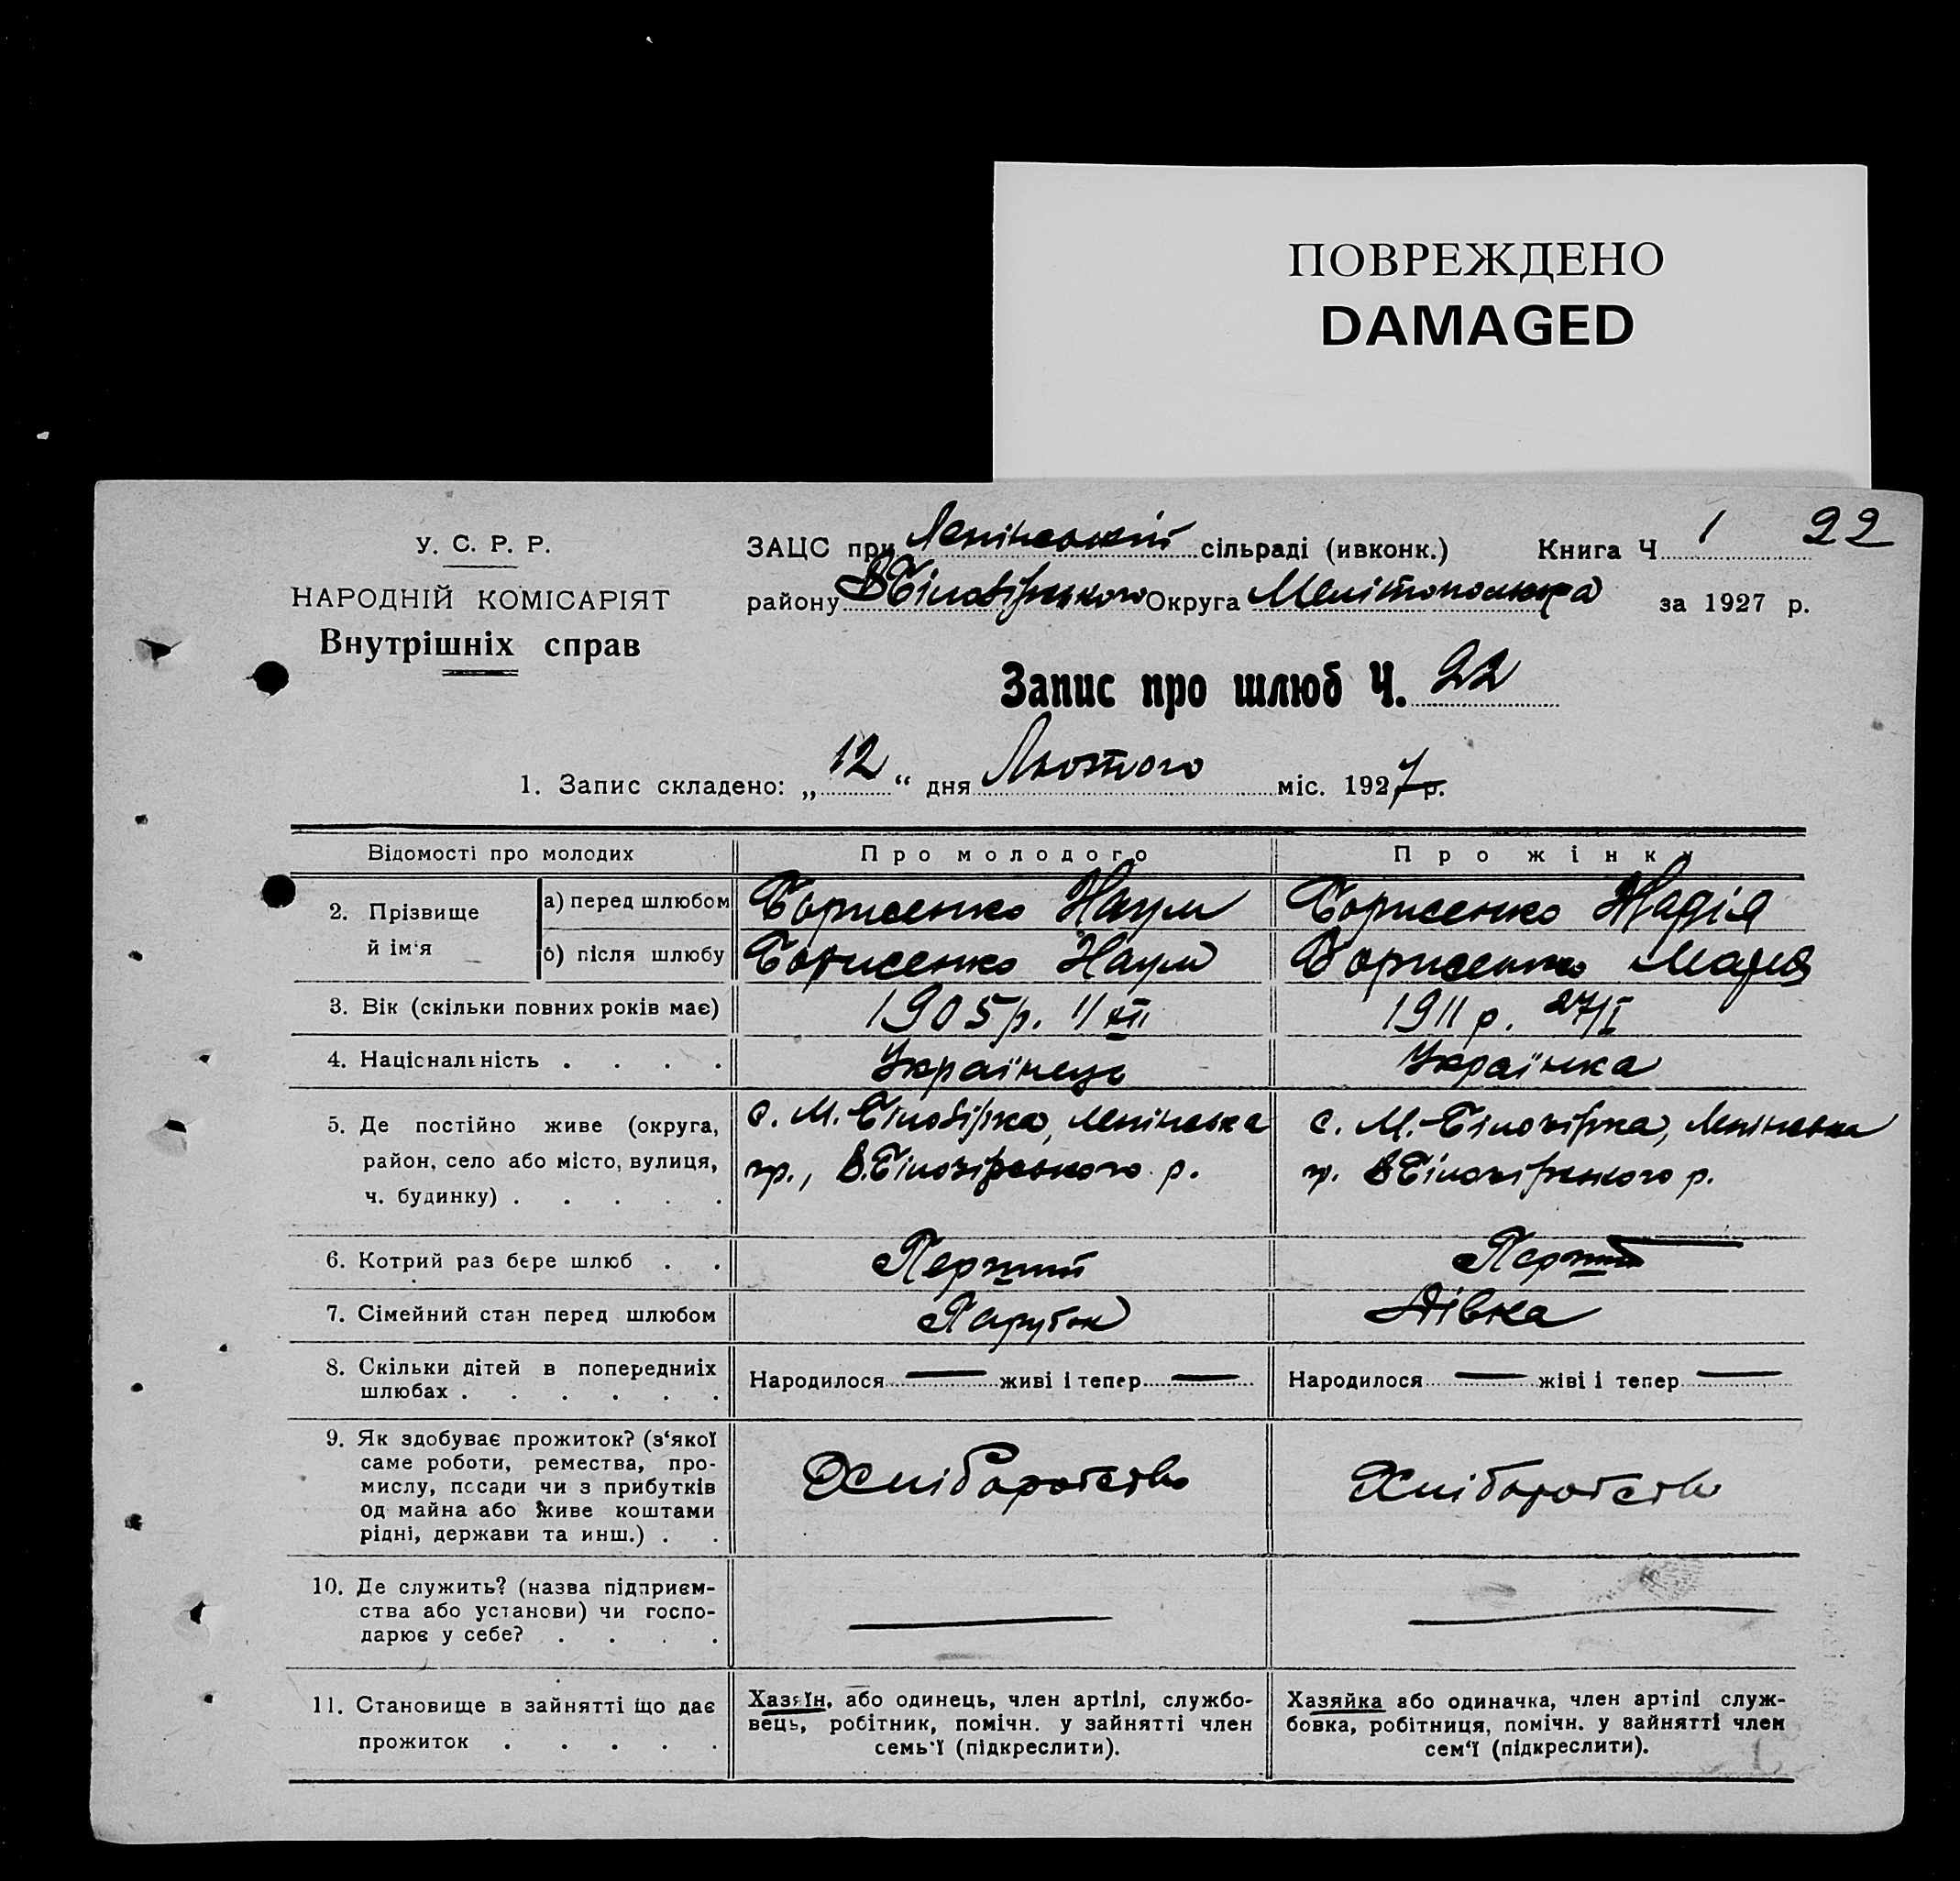 ПОВРЕЖДЕНО
DAMAGED
У. С. Р. Р.
НАРОДНІЙ КОМІСАРІЯТ
Внутрішніх справ
ЗАЦС при Ленінській сільраді (ивконк.) Книга Ч 1 22
району В Білозірського Округа за 1927 р.
Запис про шлюб Ч. 22
1. Запис складено: „12“ дня Лютого міс. 1927 р.
Відомості про молодих Про молодого Про жінку
2. Прізвище й ім'я
а) перед шлюбом Борисенко Наум Борисенко Надія
б) після шлюбу Борисенко Наум Борисенко
3. Вік (скільки повних років має) 1905 р. 11/XII 1911 р. 27/I
4. Національність . . . . Українець Українка
5. Де постійно живе (округа, с. М.-Білозірка, Ленінська с. М.-Білозірка, Ленінська
район, село або місто, вулиця, гр., В.Білозірського р. гр. В Білозірського р.
ч. будинку) . . . . .
6. Котрий раз бере шлюб . . Перший Перший
7. Сімейний стан перед шлюбом Парубок Дівка
8. Скільки дітей в попередниіх Народилося — живі і тепер — Народилося — жіві і тепер —
шлюбах . . . . . .
9. Як здобуває прожиток? (з'якої
саме роботи, ремества, про-
мислу, посади чи з прибутків Хліборобство Хліборобство
од майна або живе коштами
рідні, держави та инш.) . .
10. Де служить? (назва підприєм-
ства або установи) чи госпо- — —
дарює у себе? . . . .
11. Становище в зайнятті що дає Хазяїн, або одинець, член артілі, службо- Хазяйка або одиначка, член артілі служ-
вець, робітник, помічн. у зайнятті член бовка, робітниця, помічн. у зайнятті член
прожиток . . . . . семь'ї (підкреслити). сем'ї (підкреслити).